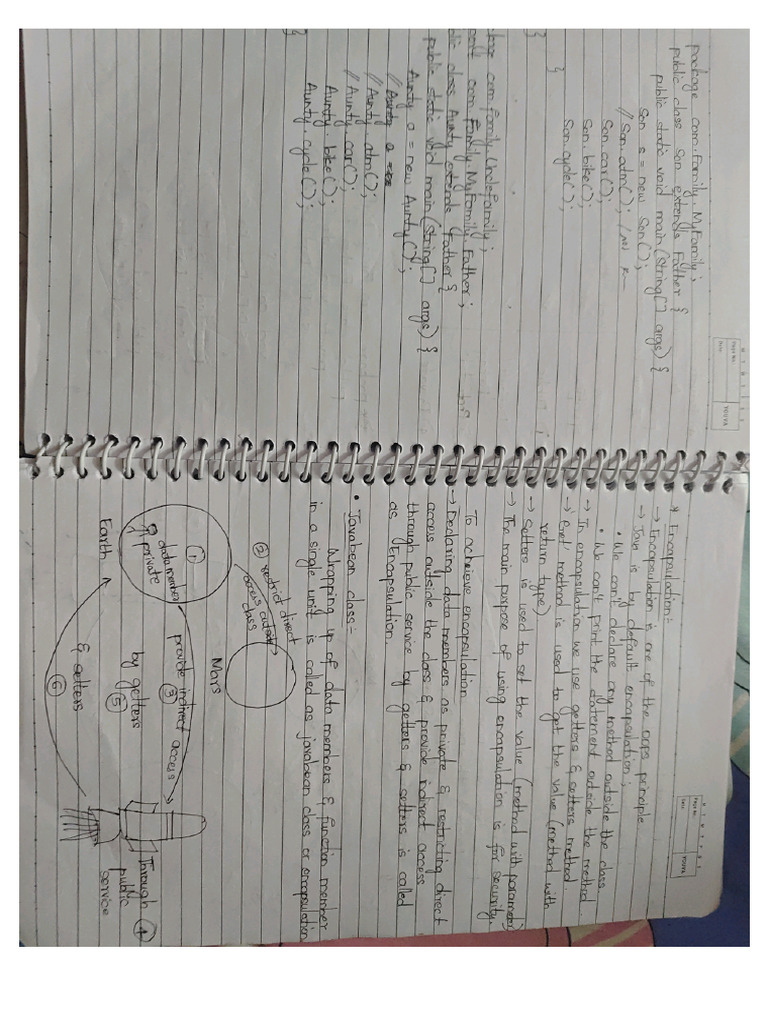 package com.Family.MyFamily;
public class Son extends Father {
public static void main(String[] args) {
Son s = new Son();
//Son.atm();
Son.car();
Son.bike();
Son.cycle();
}
}
com.family.ChoteFamily;
com.Family.MyFamily.Father;
class Aunty extends Father {
public static void main(String[] args) {
Aunty a = new Aunty();
//Aunty a =
//Aunty atm();
//Aunty car();
Aunty. bike();
Aunty. cycle();
}
Page No.
Date
YOUVA
* Encapsulation:-
→ Encapsulation is one of the oops principle
→ Java is by default encapsulation;
• We can't declare any method outside the class
• We can't print the statement outside the method.
→ In encapsulation we use getters & setters method.
→ Get method is used to get the value (method with
return type)
→ Setters is used to set the value (method with parameter)
→ The main purpose of using encapsulation is for security.
To acheieve encapsulation
→ Declaring data members as private & restricting direct
access outside the class & provide indirect access
through public service by getters & setters is called
as Encapsulation.
• Javabean class:-
Wrapping up of data members & function member
in a single unit is called as javabean class or encapsulation
② restrict direct
access outside
class
Mars
①
data member
private
Earth
provide indirect access
③
by getters
⑤
& setters
⑥
Through ④
public
service
Page No.
Date
YOUVA